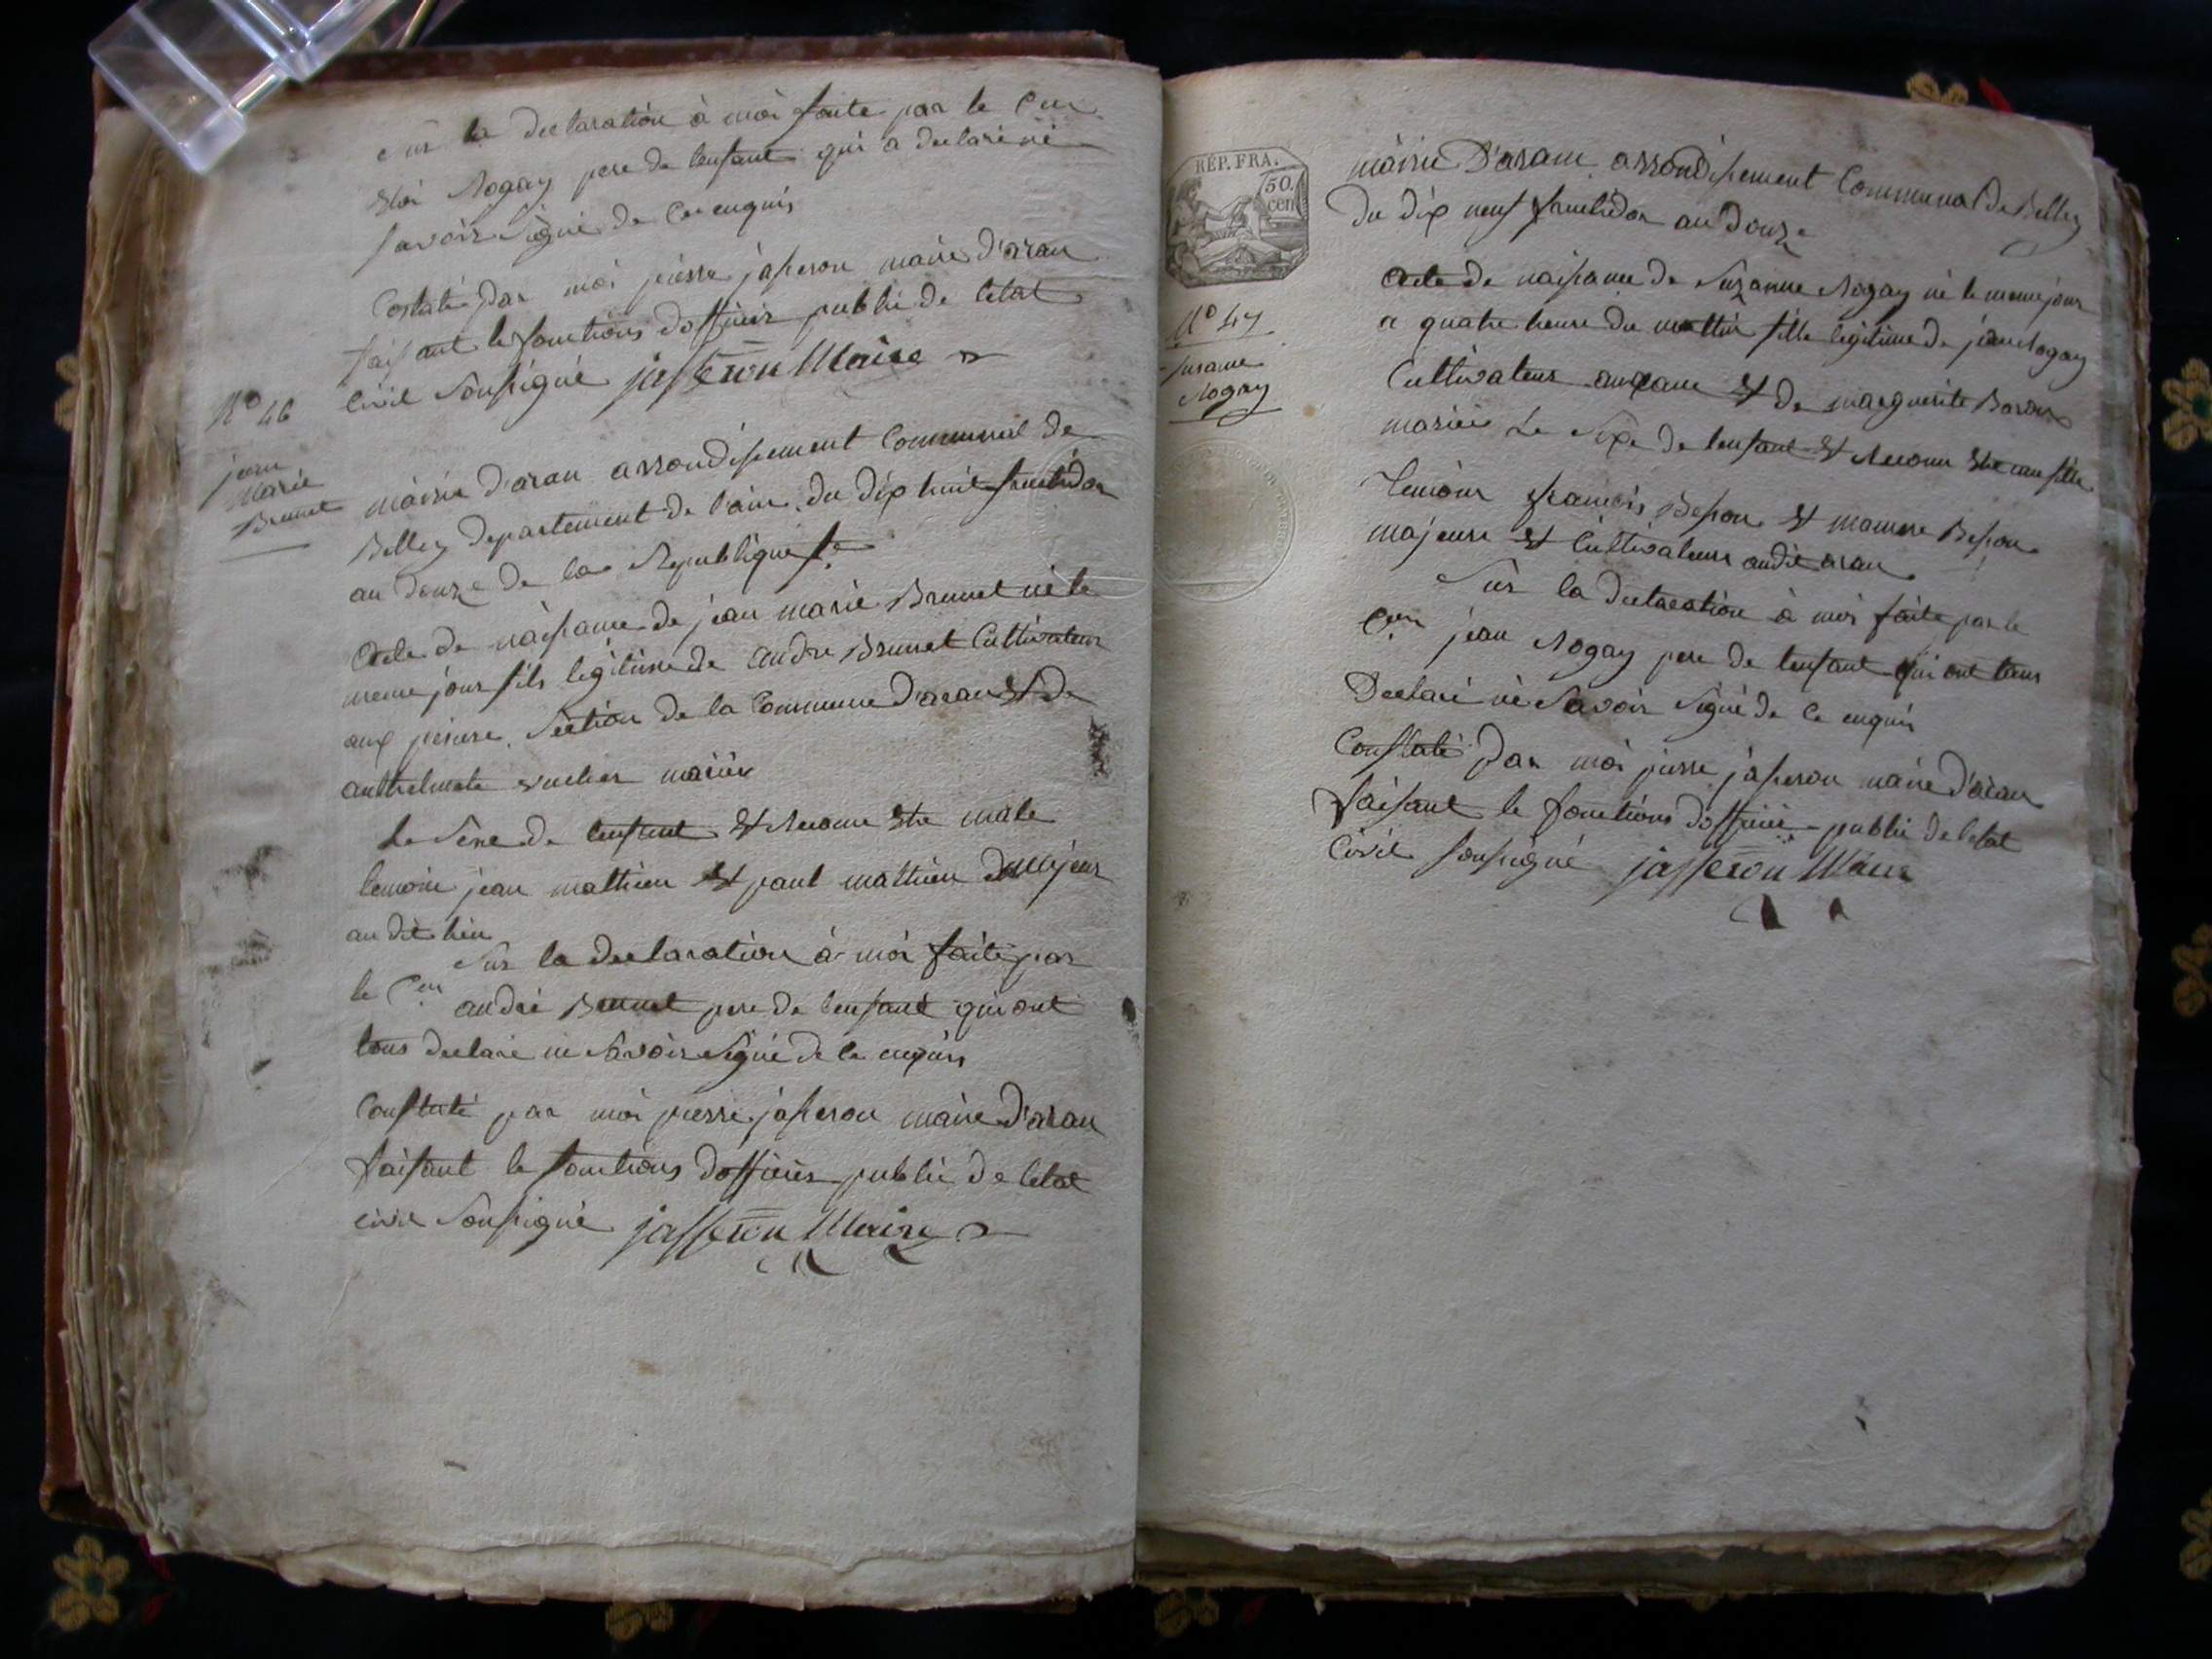 Sur la declaration à moi faite par le Cen
Rogay pere de lenfant qui a declaré nè
savoir Signé de Ce enquis
Costaté par moi pierre jasseron maire d'aran
faisant le fonctions dofficier public de letat
Civil Soussigné jasseron Maire
N° 46
jean
Marie
Brunet
mairie d'aran arrondissement Communal de
Belley departement de l'ain du dix huit fructidor
an douze de la Republique fse
acte de naissance de jean marie Brunet nè le
meme jour fils legitime de andre Brunet Cultivateur
aux Section de la Commune d'aran et de
anthelmete mariés
Le Sexe de lenfant et Reconu etre male
temoin jean mathieu et paul mathieu majeur
au dit lieu
Sur la declaration à moi faite par
le Cen andré Brunet pere de lenfant qui ont
tous declaré ne Savoir Signé de ce enquis
Constaté par moi pierre jasseron maire d'aran
faisant le fonctions dofficier public de letat
civil Soussigné jasseron Maire
RÉP. FRA.
50.
cen
N° 47
Susanne
Rogay
mairie D'aran arrondissement Communal De Belley
Du dix neuf fructidor an douze
acte de naissance de Suzanne Rogay nè le meme jour
a quatre heure du mattin fille legitime de jean Rogay
Cultivateur et de marguerite
mariés Le Sexe de lenfant et Reconu etre une fille
Temoin francois Besson et Besson
majeurs et Cultivateurs audit aran
Sur la declaration à moi faite par le
Cen jean Rogay pere de lenfant qui ont tous
Declaré nè Savoir Signé de Ce enquis
Constaté par moi pierre jasseron maire d'aran
faisant le fonctions dofficié public de letat
Civil soussigné jasseron Maire